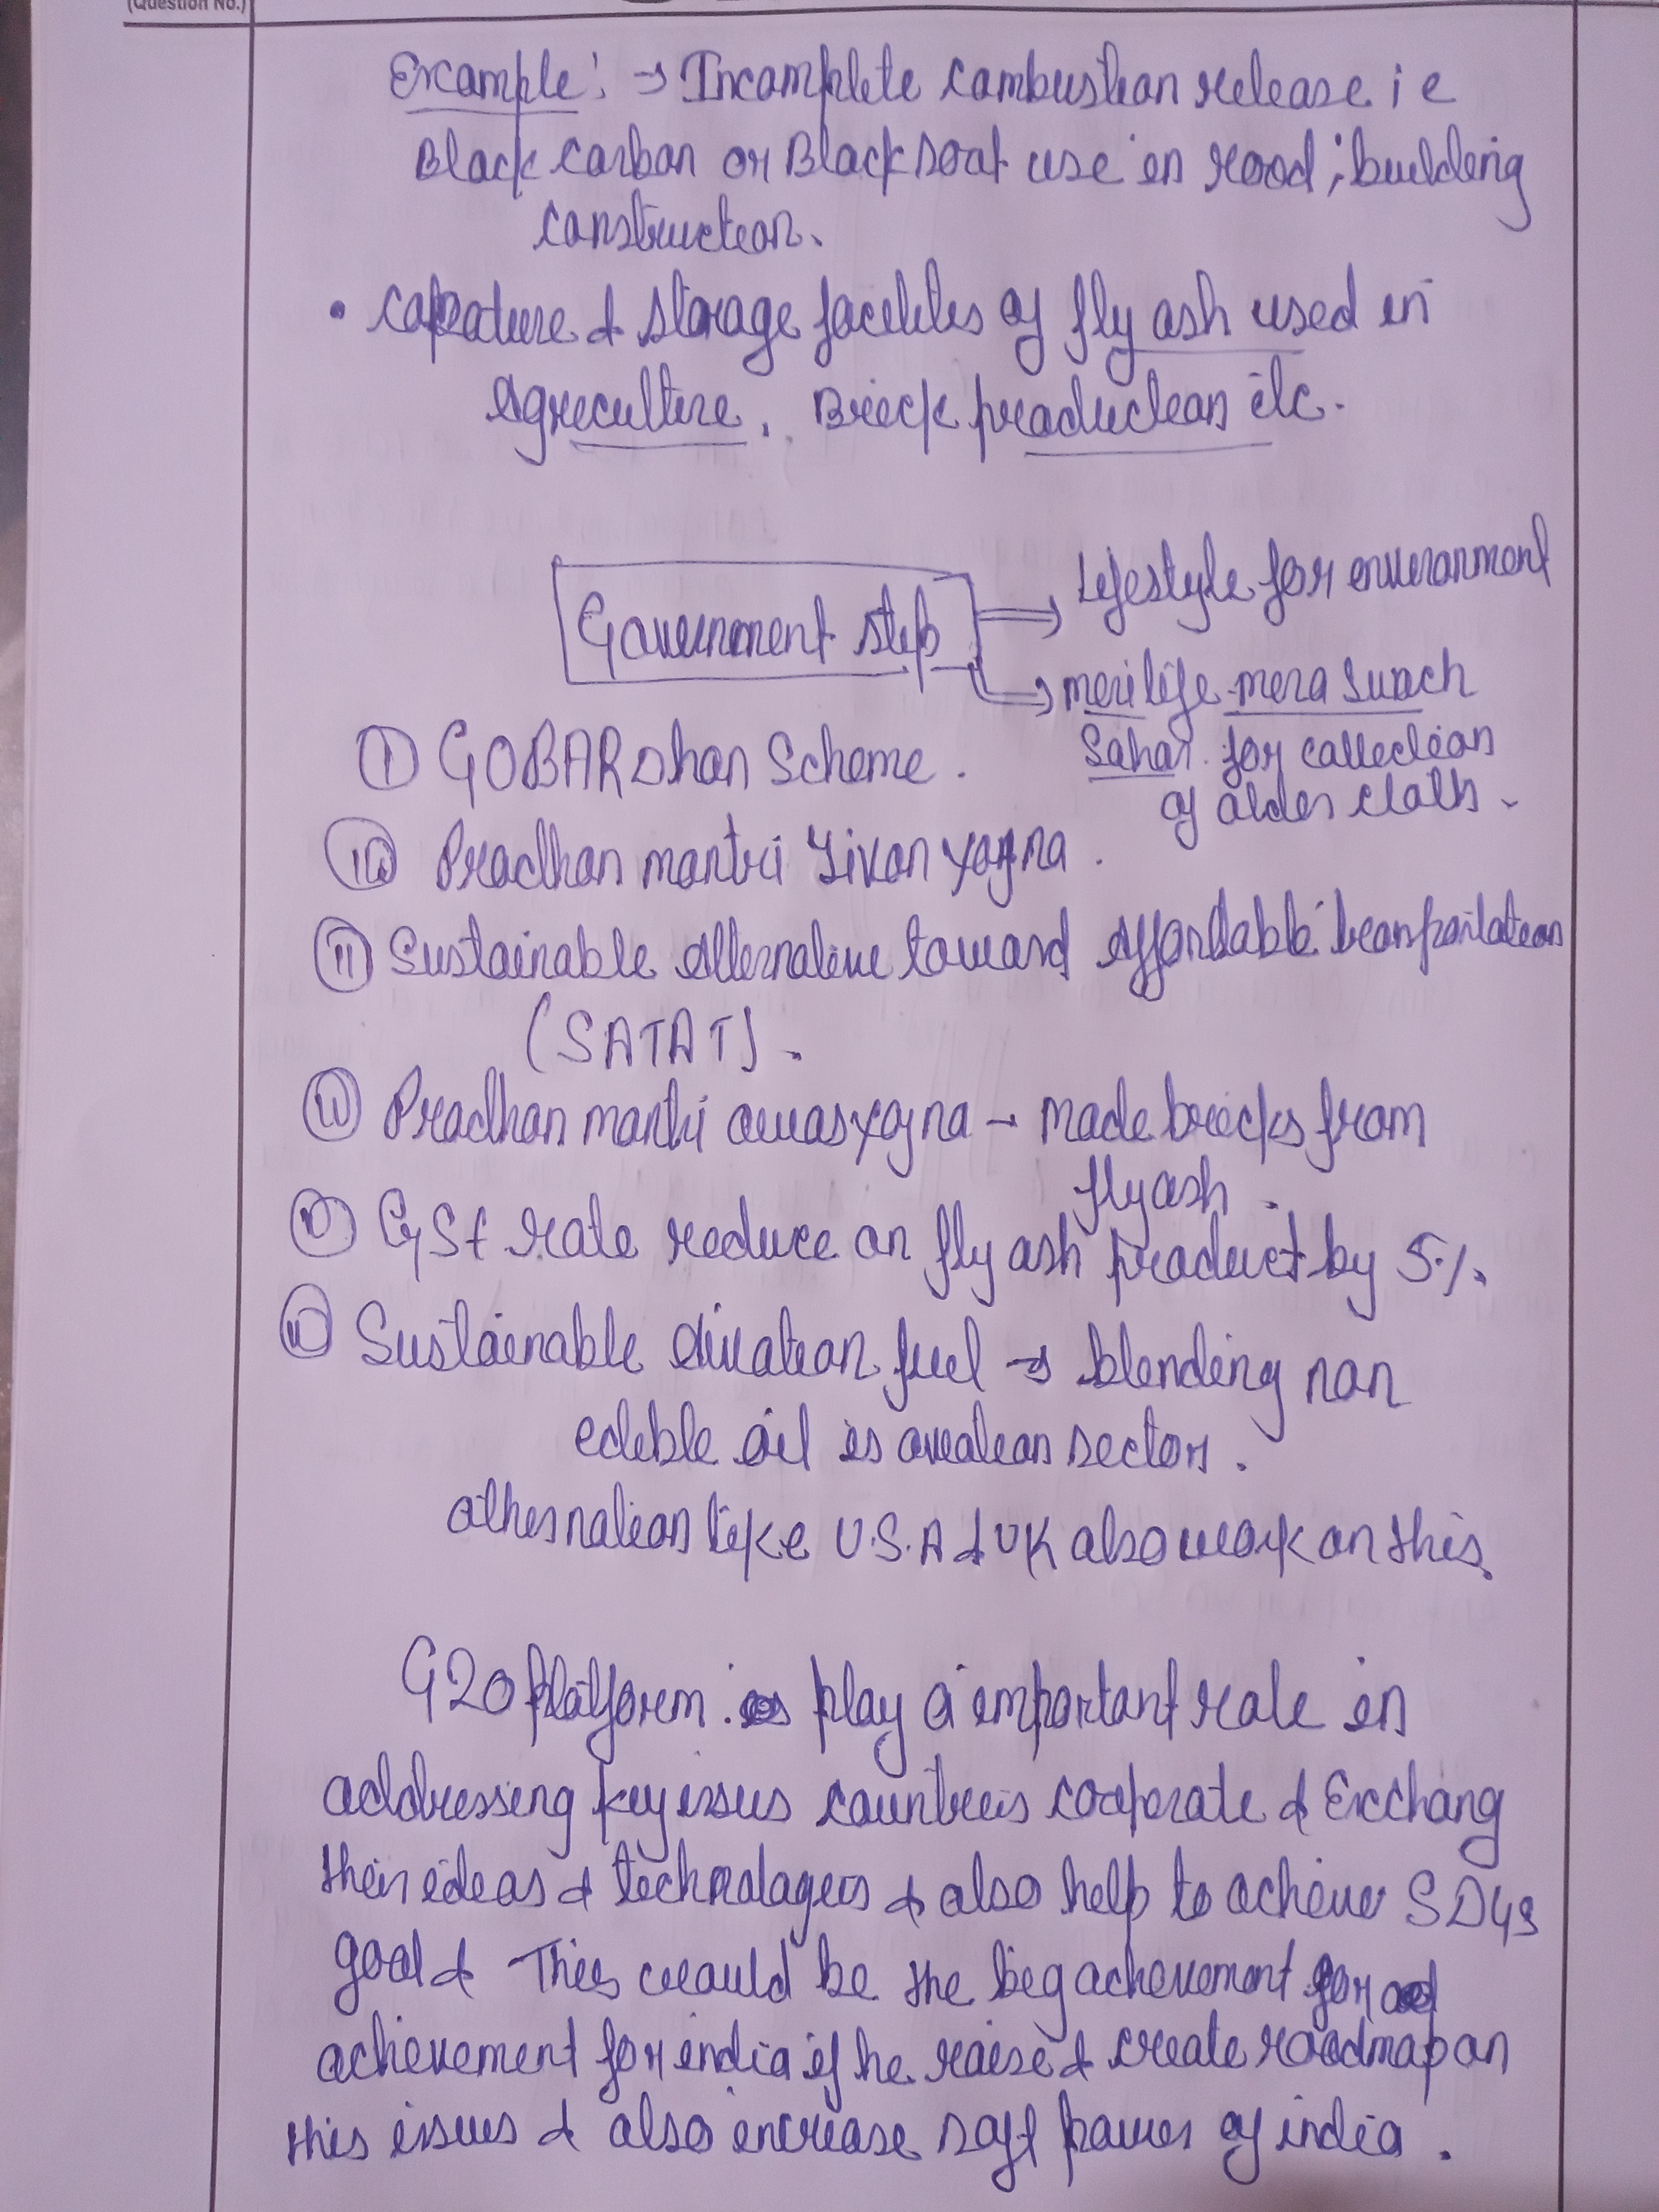 (Question No.)
Example: → Incomplete combustion release i e
Black carbon or Black soot use in road, building
construction.
• capature & storage facilites of fly ash used in
Agreculture, Breick production etc.
Government step ⇒ Lifestyle for environment
⇒ meri life mera swach
Sahar for collection
of older cloths.
① GOBARDhan Scheme.
Pradhan mantri Jivan yogna.
⑪ Sustainable alternative toward affordable transportation
(SATAT).
Pradhan mantri awas yogna → made breicks from
fly ash.
GST rate reduce on fly ash product by 5%.
Sustainable aviation fuel → blending non
edible oil is aviation sector.
other nation like U.S.A & UK also work on this.
G20 platform play a important role in
addressing key issues countries cooperate & Exchang
their ideas & technologies & also help to achieve SDGs
goal & This would be the big achievement for
achievement for india if he raise & create roadmap on
this issues & also increase soft power of india.